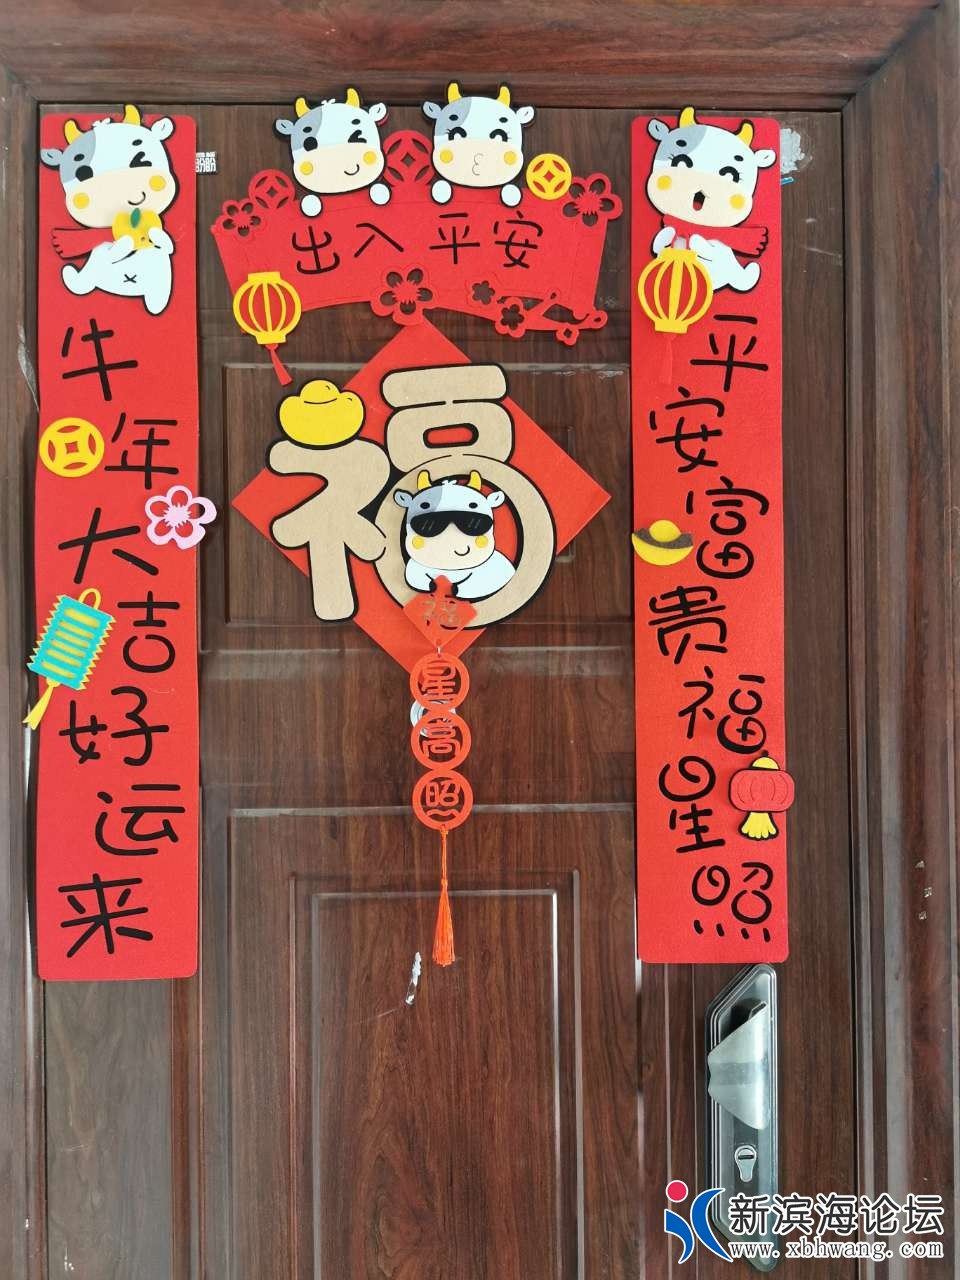 出入平安
牛年大吉好运来
平安富贵福星照
福
福
星高照
新滨海论坛
www.xbhwang.com